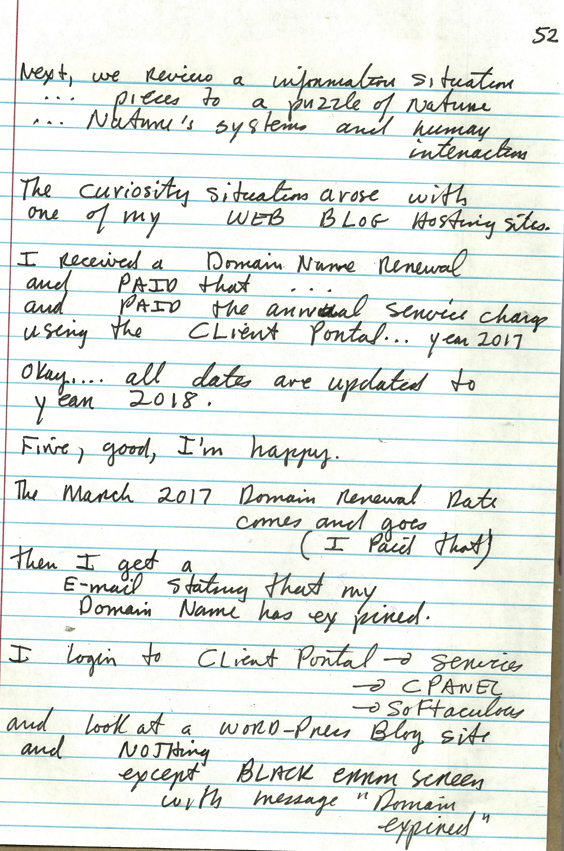 52
Next, we review a information situation
... pieces to a puzzle of Nature
... Nature's systems and human
interaction
The curiosity situation arose with
one of my WEB BLOG Hosting sites.
I received a Domain Name Renewal
and PAID that ...
and PAID the annual service charge
using the CLient Portal... year 2017
Okay.... all dates are updated to
year 2018.
Fine, good, I'm happy.
The March 2017 Domain Renewal Date
comes and goes
(I Paid that)
then I get a
E-mail stating that my
Domain Name has expired.
I login to CLient Portal → services
→ CPANEL
→ Softaculous
and look at a WORD-Press Blog site
and NOTHing
except BLACK error screen
with message "Domain
expired"